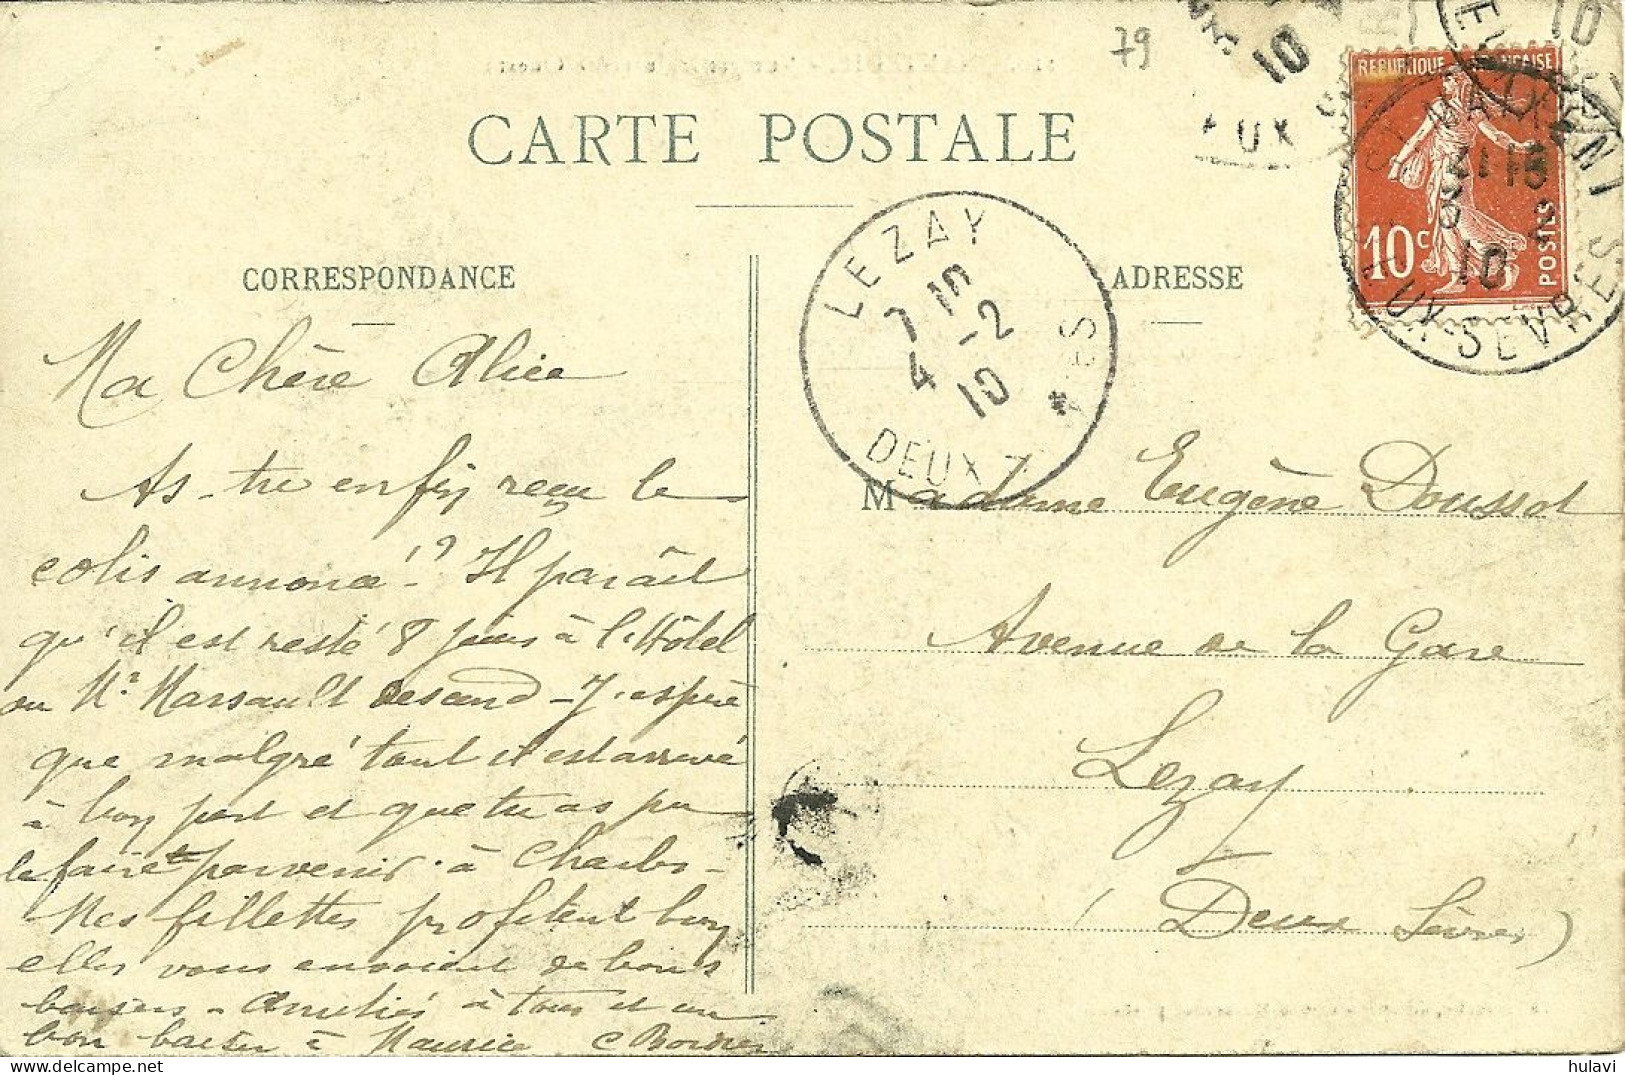 79
CARTE POSTALE
CORRESPONDANCE
ADRESSE
REPUBLIQUE FRANÇAISE
10c
POSTES
ST MAIXENT
DEUX-SEVRES
10
LEZAY
7 10
4 -2
10
DEUX-
Ma Chère Alice
As-tu enfin reçu le
colis annoncé !? Il paraît
qu'il est resté 8 jours à l'Hôtel
ou Mr Marsault descend - J'espère
que malgré tout il est arrivé
à bon port et que tu as pu
le faire parvenir à Charles -
Mes fillettes profitent bien
elles vous envoient de bons
baisers - Amitiés à tous et un
bon baiser à Maurice
Madame Eugène Doussot
Avenue de la Gare
Lezay
(Deux Sèvres)
hulavi